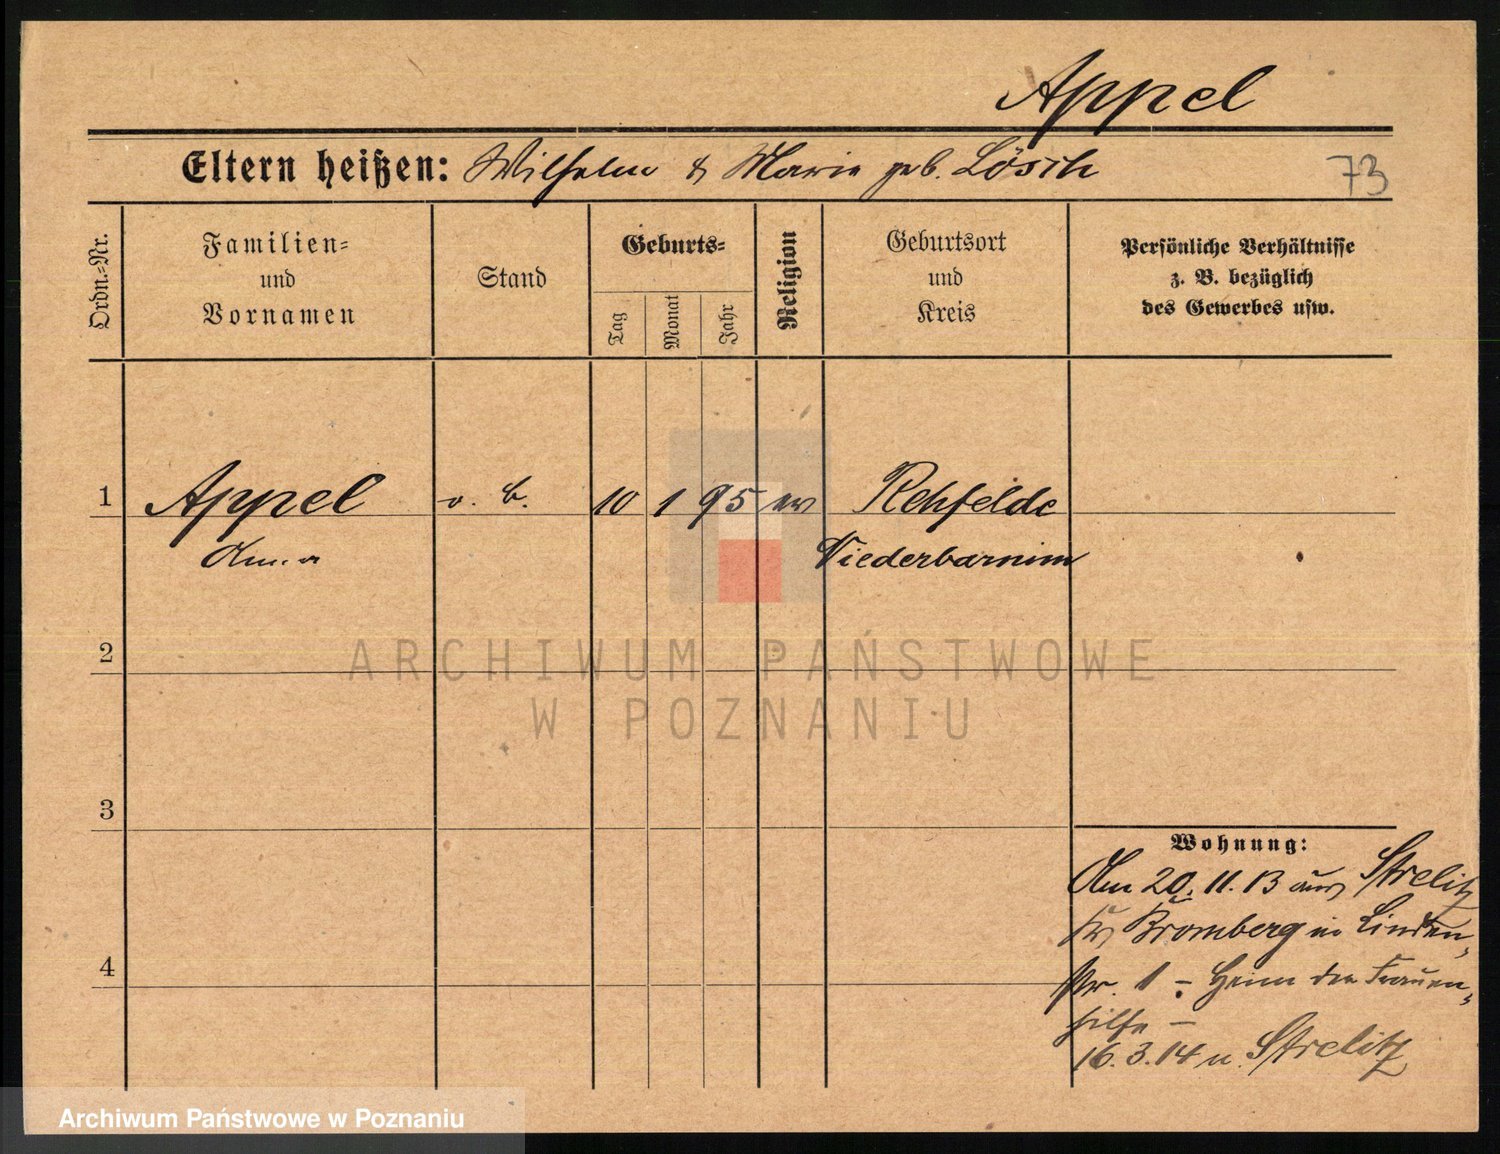 Appel
Eltern heißen: Wilhelm & Marie geb. Lösch
73
Ordn.=Nr.
Familien=
und
Vornamen
Stand
Geburts=
Tag
Monat
Jahr
Religion
Geburtsort
und
Kreis
Persönliche Verhältnisse
z. B. bezüglich
des Gewerbes usw.
1 Appel o. B. 10 1 95 ev Rehfelde
Anna Niederbarnim
2
ARCHIWUM PAŃSTWOWE
W POZNANIU
3
Wohnung:
Am 20. 11. 13 aus Strelitz
Kr. Bromberg in Linden-
4
str. 1 - Heim der Frauen-
hilfe -
16. 3. 14 n. Strelitz
Archiwum Państwowe w Poznaniu